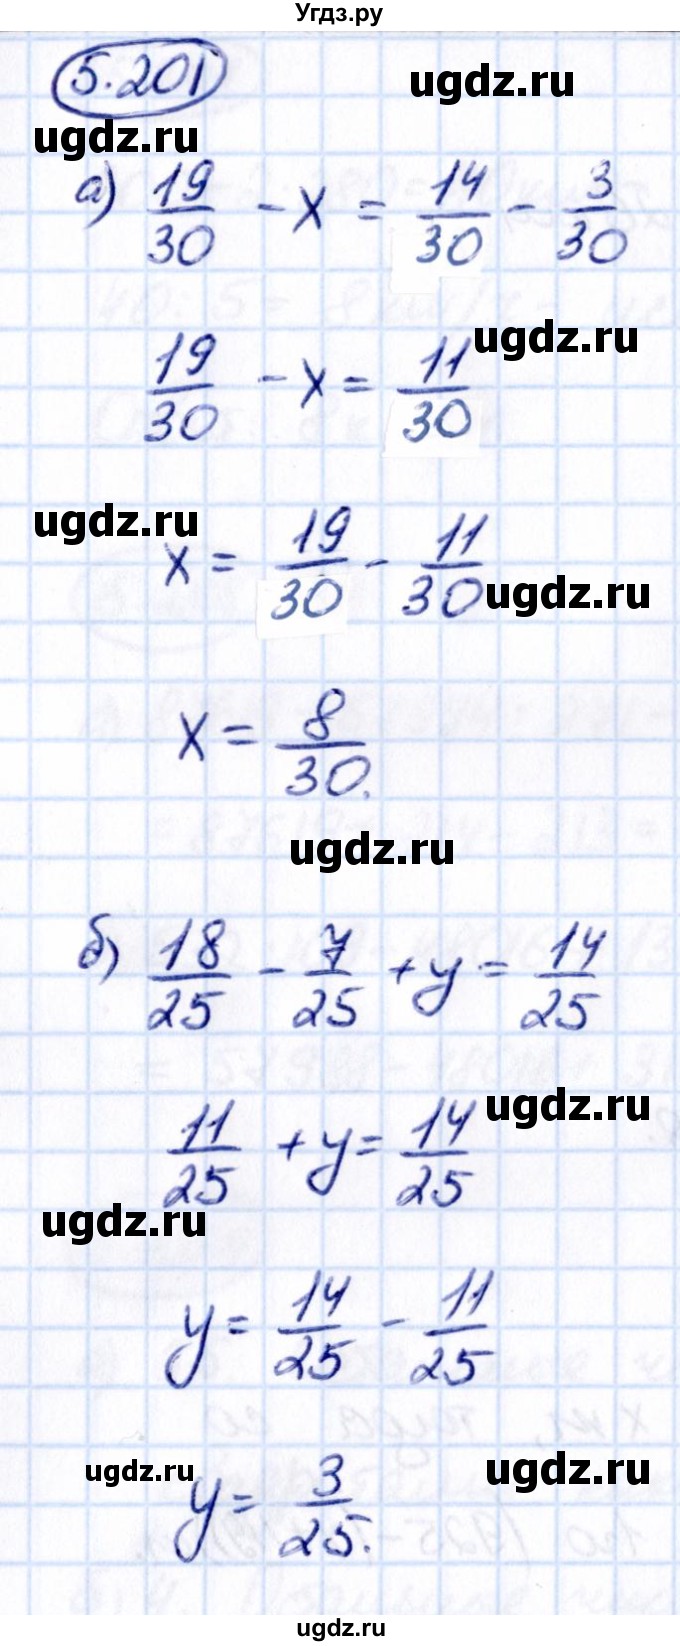 Угдз.ру
5.201
ugdz.ru
ugdz.ru
а) 19/30 - x = 14/30 - 3/30
ugdz.ru
19/30 - x = 11/30
ugdz.ru
x = 19/30 - 11/30
ugdz.ru
x = 8/30.
ugdz.ru
б) 18/25 - 7/25 + y = 14/25
ugdz.ru
11/25 + y = 14/25
ugdz.ru
y = 14/25 - 11/25
ugdz.ru
ugdz.ru
y = 3/25.
ugdz.ru